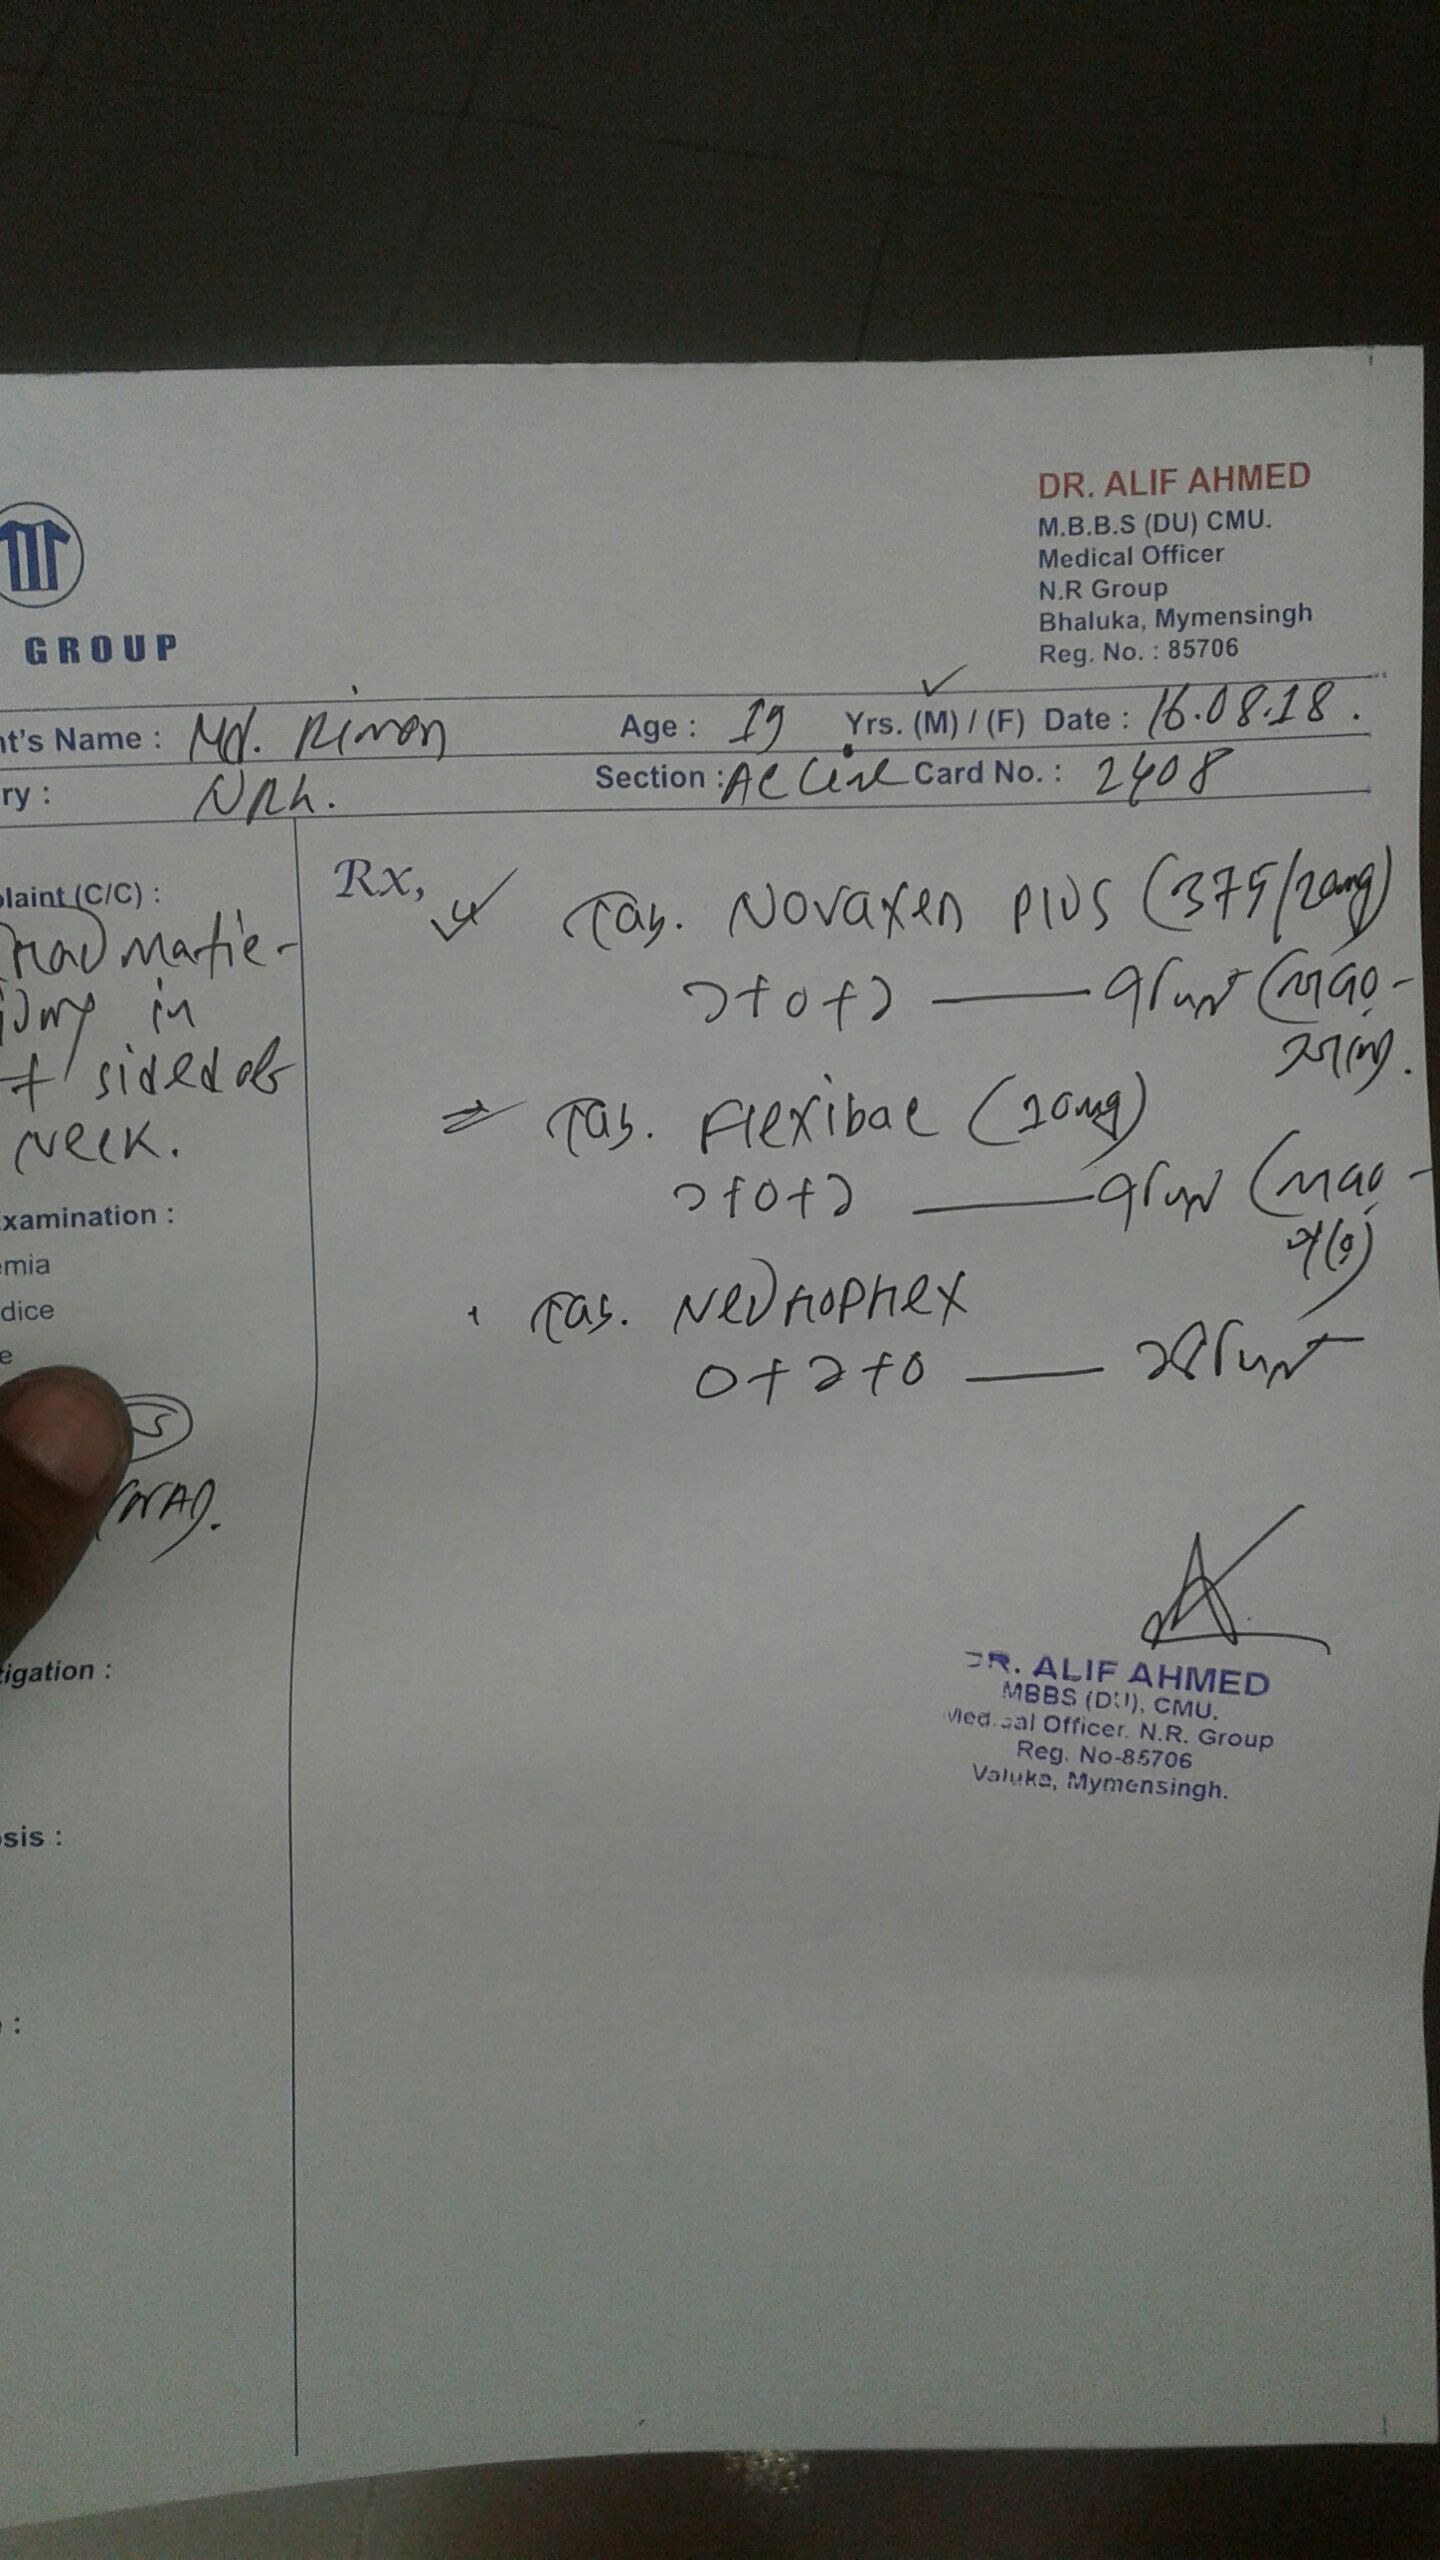 DR. ALIF AHMED
M.B.B.S (DU) CMU.
Medical Officer
N.R Group
Bhaluka, Mymensingh
Reg. No. : 85706
GROUP
nt's Name : Md. Rimon Age : 19 Yrs. (M) / (F) Date : 16.08.18.
ry : Section : Card No. : 2408
plaint (C/C) :
in
sided of
Neck.
xamination :
emia
dice
e
tigation :
osis :
:
Rx,
Tab. Novaxen Plus (375/20mg)
১+০+১ —
Tab. Flexibac (10mg)
১+০+১ —
Tab. Neurophex
০+১+০ —
DR. ALIF AHMED
MBBS (DU), CMU.
Medical Officer. N.R. Group
Reg. No-85706
Valuka, Mymensingh.